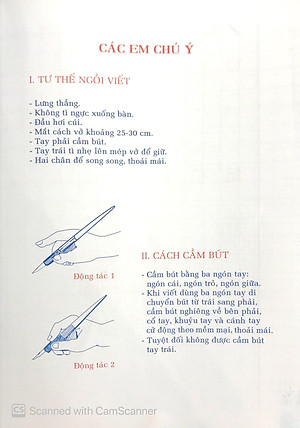 CÁC EM CHÚ Ý
I. TƯ THẾ NGỒI VIẾT
- Lưng thẳng.
- Không tì ngực xuống bàn.
- Đầu hơi cúi.
- Mắt cách vở khoảng 25-30 cm.
- Tay phải cầm bút.
- Tay trái tì nhẹ lên mép vở để giữ.
- Hai chân để song song, thoải mái.
Động tác 1
II. CÁCH CẦM BÚT
- Cầm bút bằng ba ngón tay:
ngón cái, ngón trỏ, ngón giữa.
- Khi viết dùng ba ngón tay di
chuyển bút từ trái sang phải,
cầm bút nghiêng về bên phải,
cổ tay, khuỷu tay và cánh tay
cử động theo mềm mại, thoải mái.
- Tuyệt đối không được cầm bút
tay trái.
Động tác 2
CS Scanned with CamScanner